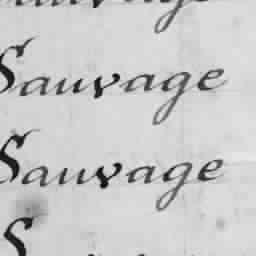 Sauvage
Sauvage